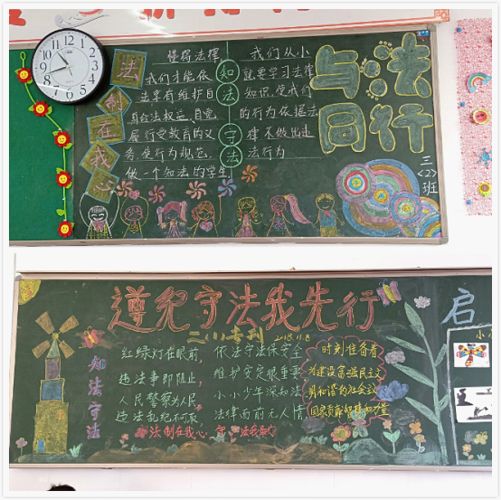 与法
同行
法
制
在
我
心
懂得法律
我们才能依
法享有维护自
身合法权益,自觉
履行受教育的义
务,使行为规范,
做一个知法的学生
知
法
守
法
我们从小
就要学习法律
知识,使我们
的行为依据法
律,不做出违
法行为
三
<2>
班
遵纪守法我先行
三(1)专刊
知法守法
红绿灯在眼前
违法事即阻止,
人民警察为人民,
依法守法保安全
维护安定很重要
小小少年深知法
法律面前无人情
时刻准备着
为建设富强民主文
明和谐的社会主义
法制在我心
启